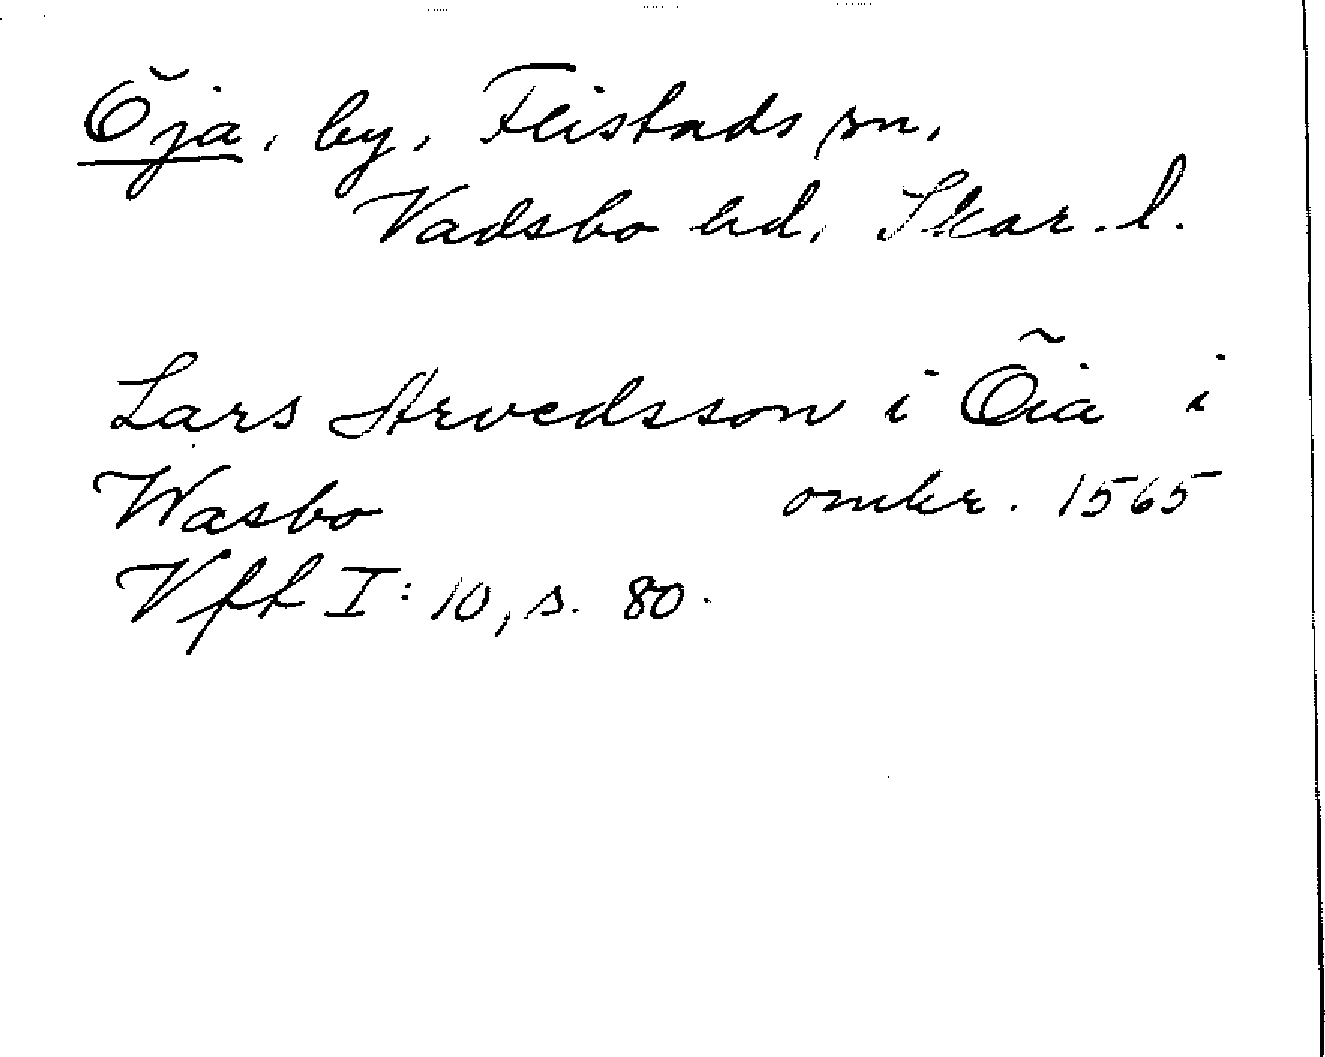 Öja, by, Flistads sn,
Vadsbo hd, Skar. l.
Lars Arvedsson i Öia i
Wasbo omkr. 1565
Vff I: 10, s. 80.